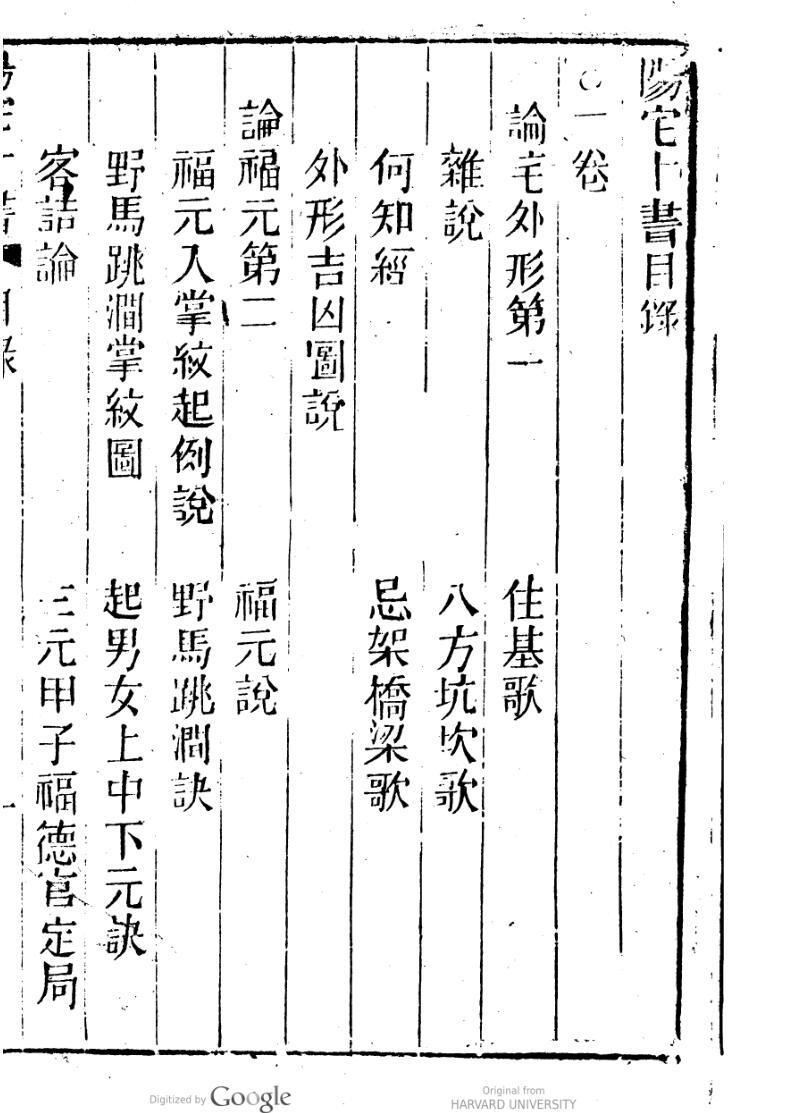 陽宅十書目錄
○一卷
論宅外形第一　住基歌
雜說　八方坑坎歌
何知經　忌架橋梁歌
外形吉凶圖說
論福元第二　福元說
福元入掌紋起例說　野馬跳澗訣
野馬跳澗掌紋圖　起男女上中下元訣
客詰論　三元甲子福德宮定局
陽宅十書　目錄　一
Digitized by Google
Original from
HARVARD UNIVERSITY